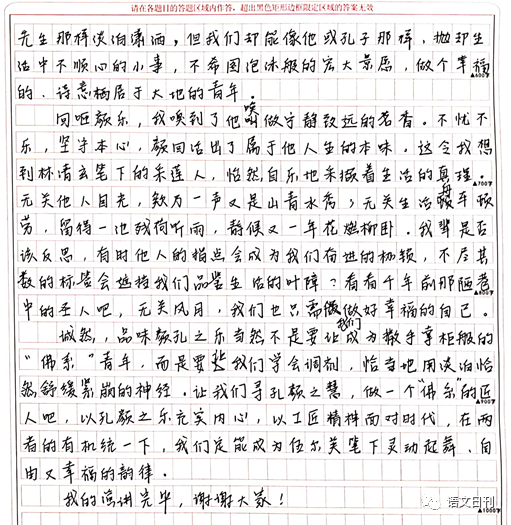 请在各题目的答题区域内作答，超出黑色矩形边框限定区域的答案无效
先生那样淡泊潇洒，但我们却能像他或孔子那样，抛却生
活中不顺心的小事，不希图泡沫般的宏大景愿，做个幸福
▲600字
的、诗意栖居于大地的青年。
回咂颜乐，我嗅到了他唤做守静致远的茗香。不忧不
乐，坚守本心，颜回活出了属于他人生的本味，这令我想
到林清玄笔下的采莲人，怡然自乐地采撷着生活的真璞。
▲700字
无关他人目光，欸乃一声又是山青水秀；无关生活舟车顿
劳，留得一池残荷听雨，静候又一年花燃柳卧。我辈是否
该反思，有时他人的指点会成为我们奋进的枷锁，不尽其
数的标签会遮挡我们品鉴生活的叶障？看看千年前那陋巷
▲800字
中的圣人吧，无关风月，我们也只需做好幸福的自己。
诚然，品味颜孔之乐当然不是要让我们成为撒手掌柜般的
“佛系”青年，而是要我们学会调剂，恰当地用淡泊怡
然舒缓紧崩的神经。让我们寻孔颜之慧，做一个“佛系”的匠
▲900字
人吧，以孔颜之乐充实内心，以工匠精神面对时代，在两
者的有机统一下，我们定能成为伍尔芙笔下灵动起舞、自
由又幸福的韵律。
我的演讲完毕，谢谢大家！
▲1000字
语文日刊